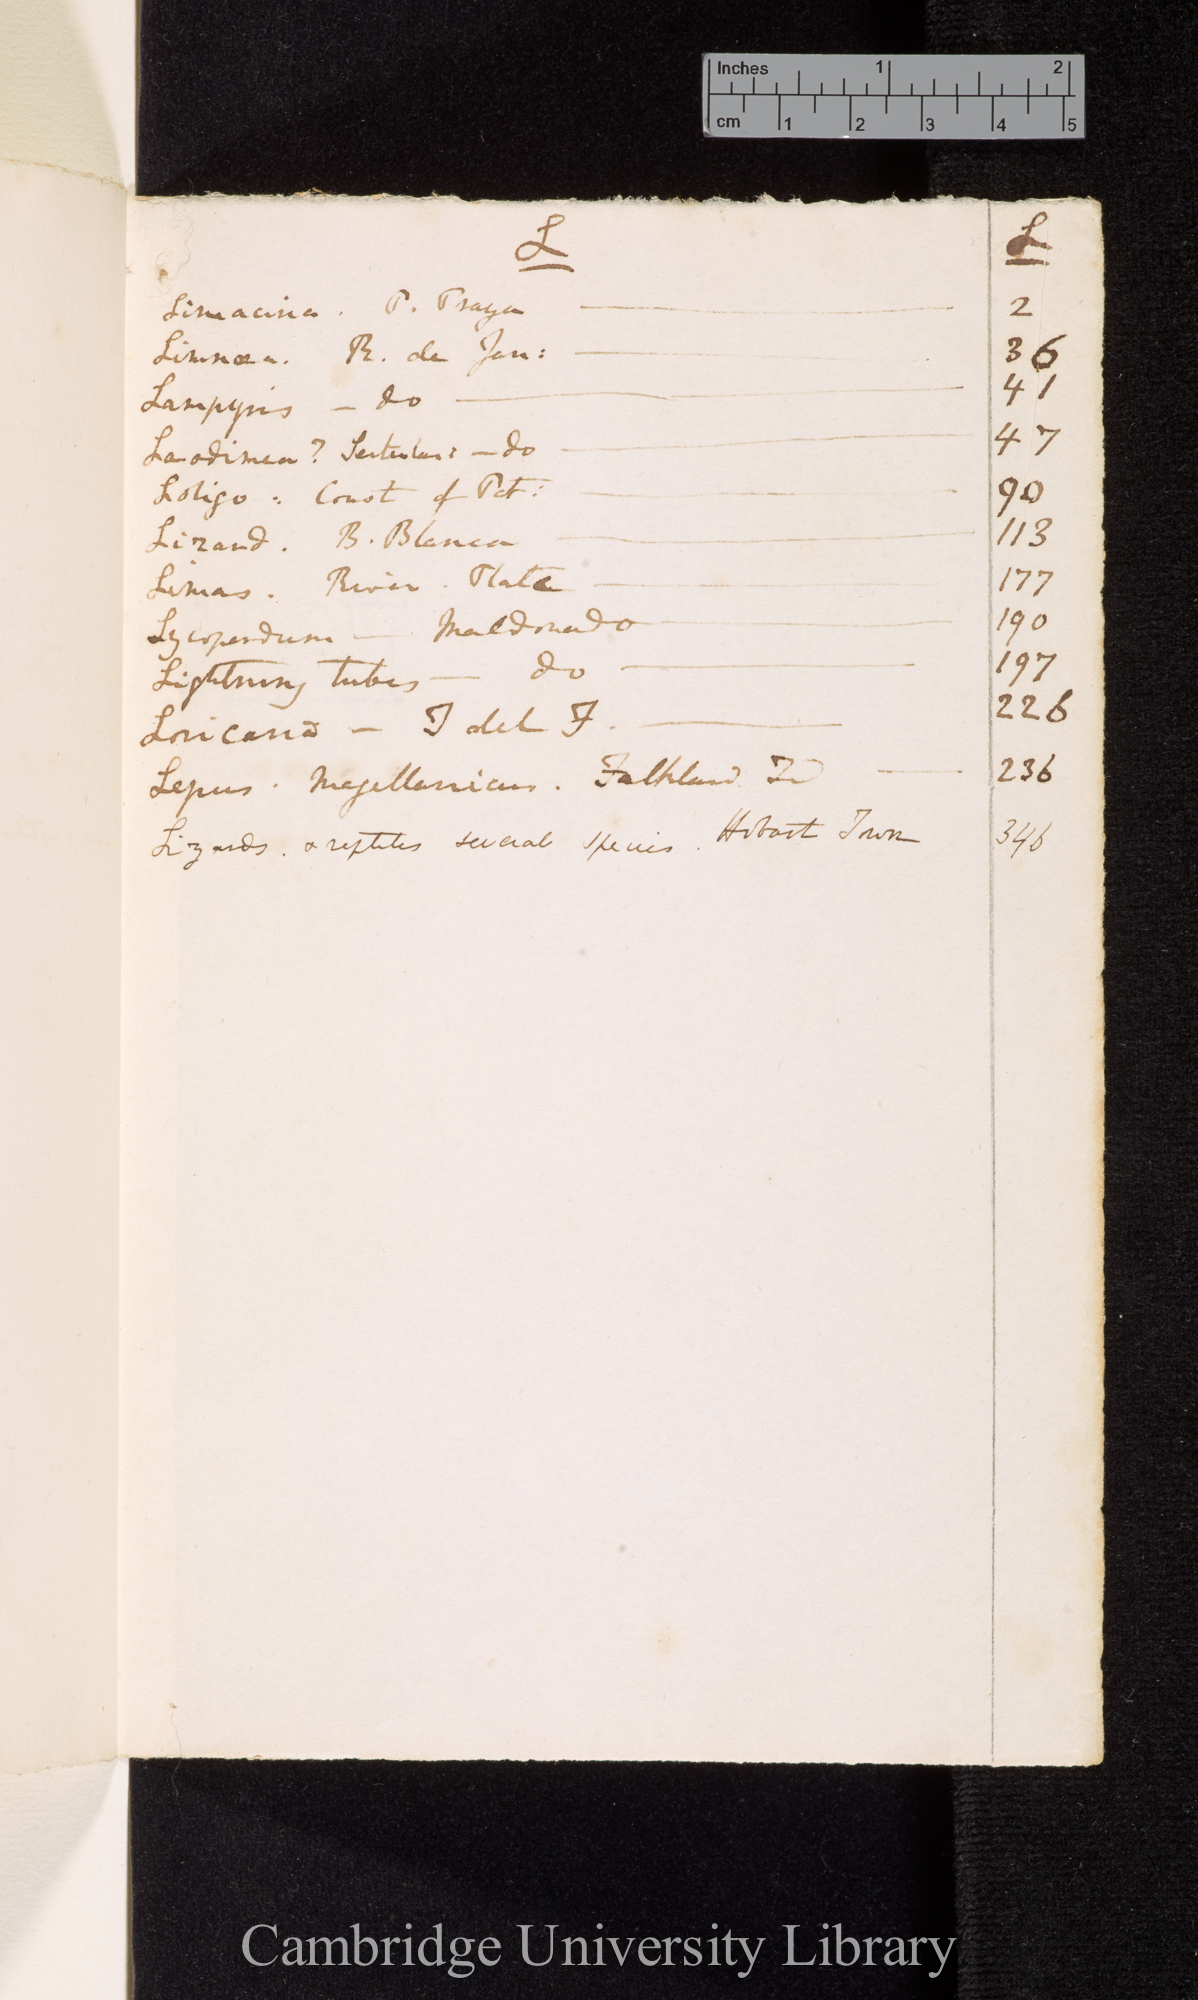 Inches 1 2
cm 1 2 3 4 5
L L
Limacina. P. Praya — 2
Limnæa. R. de Jan: — 36
Lampyris — do — 41
Laodimea? Sertular: — do — 47
Loligo: Coast of Pat: — 90
Lizard. B. Blanca — 113
Limas. River. Plata — 177
Lycoperdum — Maldonado — 190
Lightning tubes — do — 197
Loricaria — T del F. — 226
Lepus. Magellanicus. Falkland Id — 236
Lizards. & reptiles several species. Hobart Town 346
Cambridge University Library